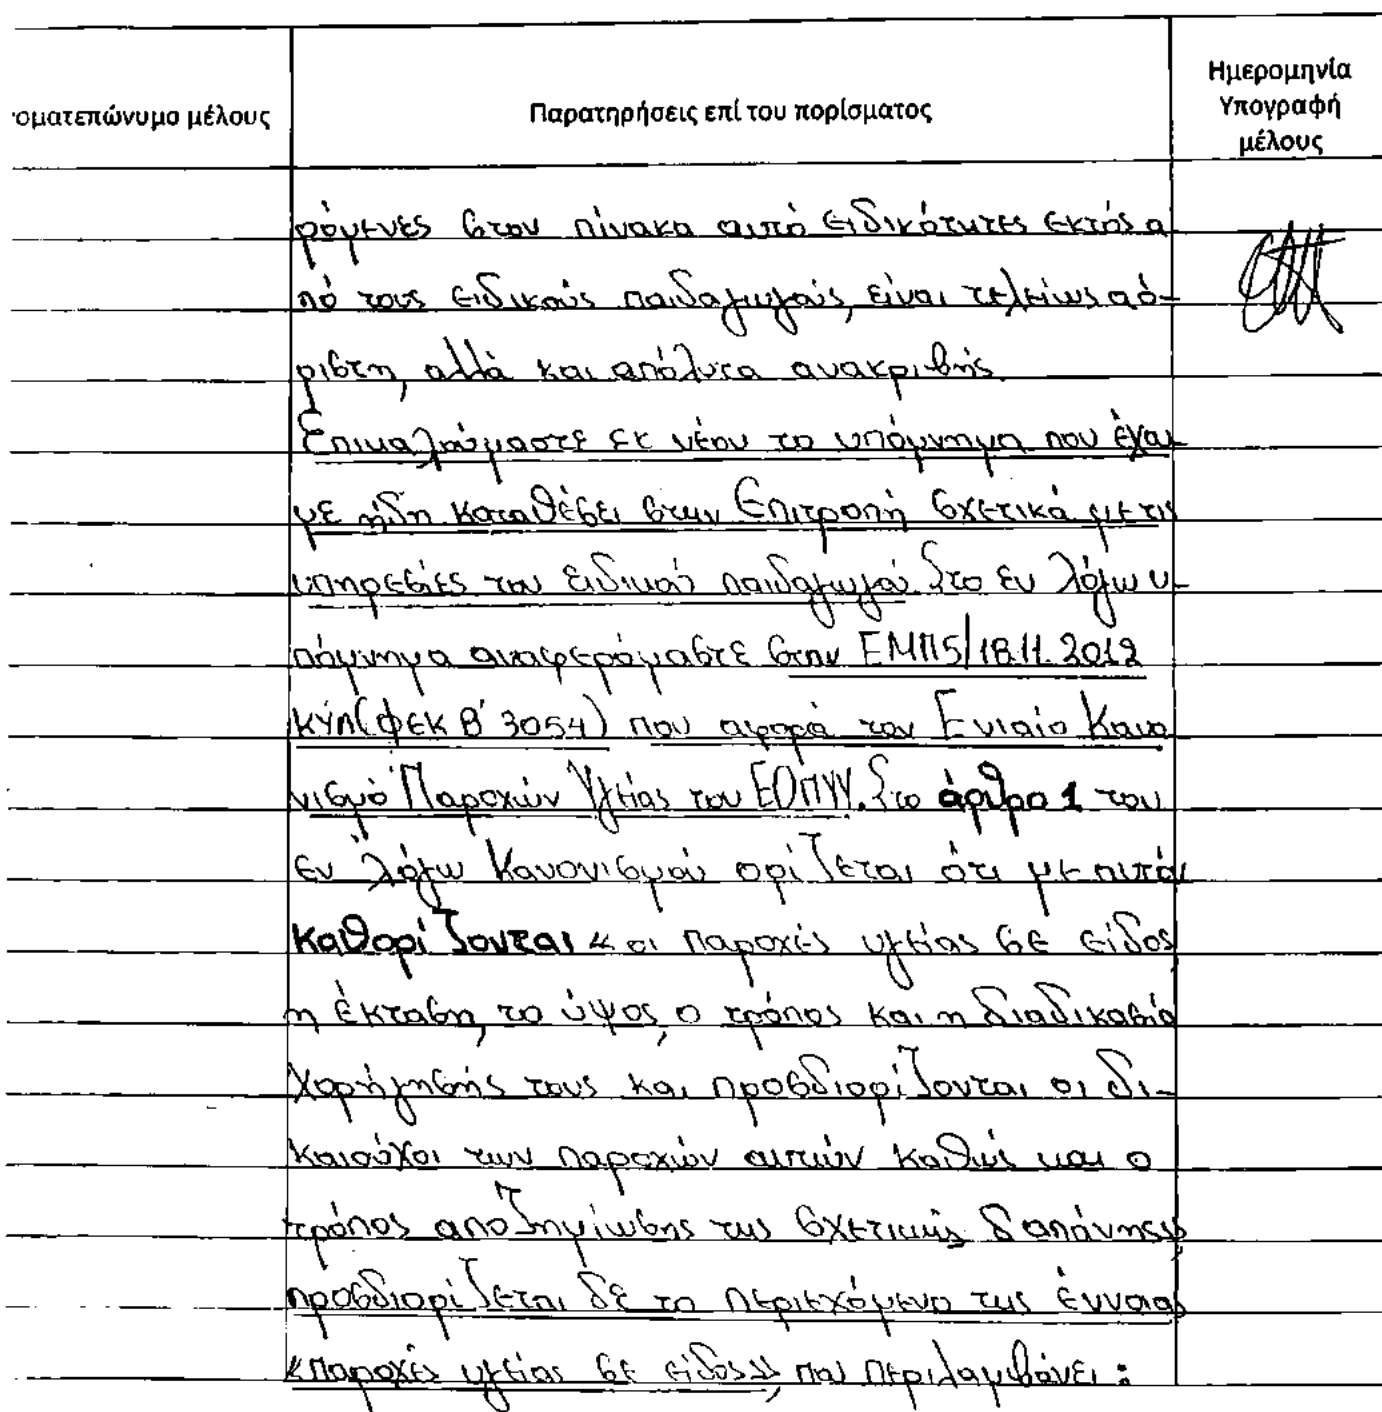 Ημερομηνία
Υπογραφή
μέλους
οματεπώνυμο μέλους
Παρατηρήσεις επί του πορίσματος
ρόμενες στον πίνακα αυτό ειδικότητες εκτός α
πό τους ειδικούς παιδαγωγούς, είναι τελείως αό-
ριστη, αλλά και απόλυτα ανακριβής.
Επικαλούμαστε εκ νέου το υπόμνημα που έχου
με ήδη καταθέσει στην Επιτροπή σχετικά με τις
υπηρεσίες του ειδικού παιδαγωγού. Στο εν λόγω υ-
πόμνημα αναφερόμαστε στην ΕΜΠ5/18.11.2012
ΚΥΑ(ΦΕΚ Β' 3054) που αφορά τον Ενιαίο Κανο
νισμό Παροχών Υγείας του ΕΟΠΥΥ. Στο άρθρο 1 του
εν λόγω Κανονισμού ορίζεται ότι με αυτόν
καθορίζονται «οι παροχές υγείας σε είδος
η έκταση, το ύψος, ο τρόπος και η διαδικασία
χορήγησής τους και προσδιορίζονται οι δι-
καιούχοι των παροχών αυτών καθώς και ο
τρόπος αποζημίωσης της σχετικής δαπάνης»
προσδιορίζεται δε το περιεχόμενο της έννοιας
«παροχές υγείας σε είδος», που περιλαμβάνει: